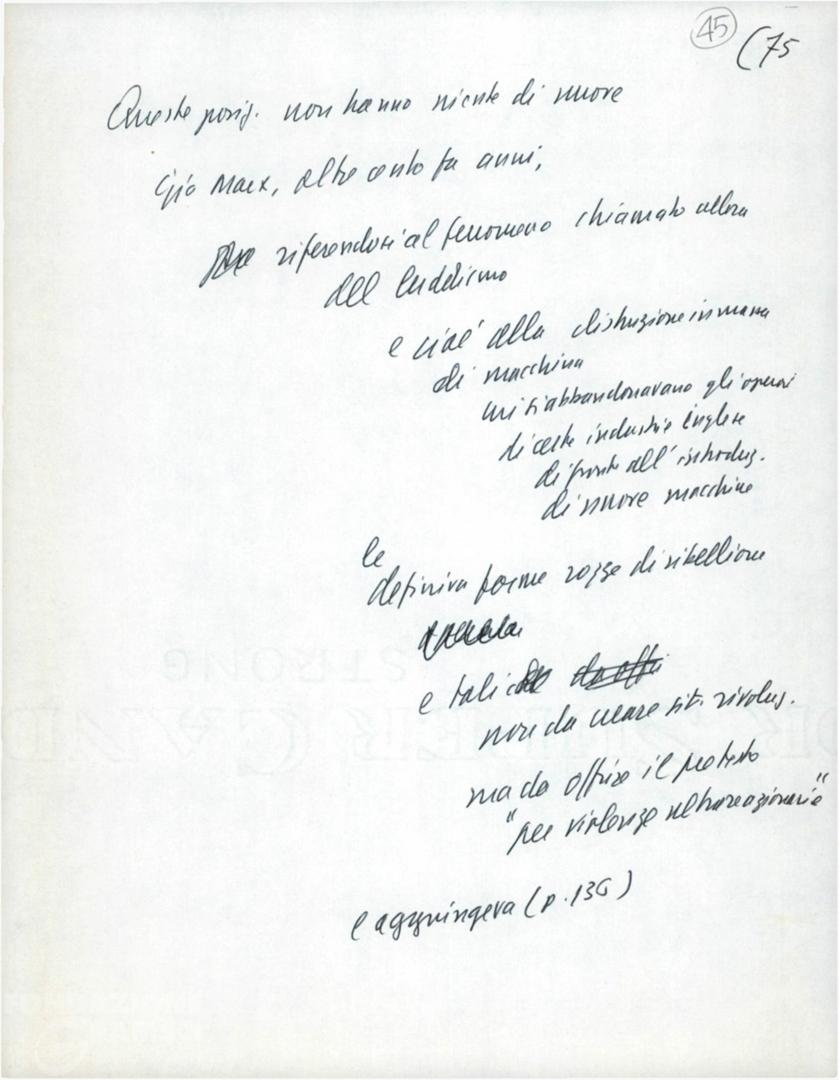 45 (75
Queste posiz. non hanno niente di nuovo
Già Marx, oltre cento fa anni,
riferendosi al fenomeno chiamato allora
del luddismo
e cioè alla distruzione in massa
di macchine
cui si abbandonavano gli operai
di certe industrie inglesi
di fronte all'introduz.
di nuove macchine
le
definiva forme rozze di ribellione
e tali
non da creare sit. rivoluz.
ma da offrire il pretesto
"per violenze ultrareazionarie"
e aggiungeva (p. 136)